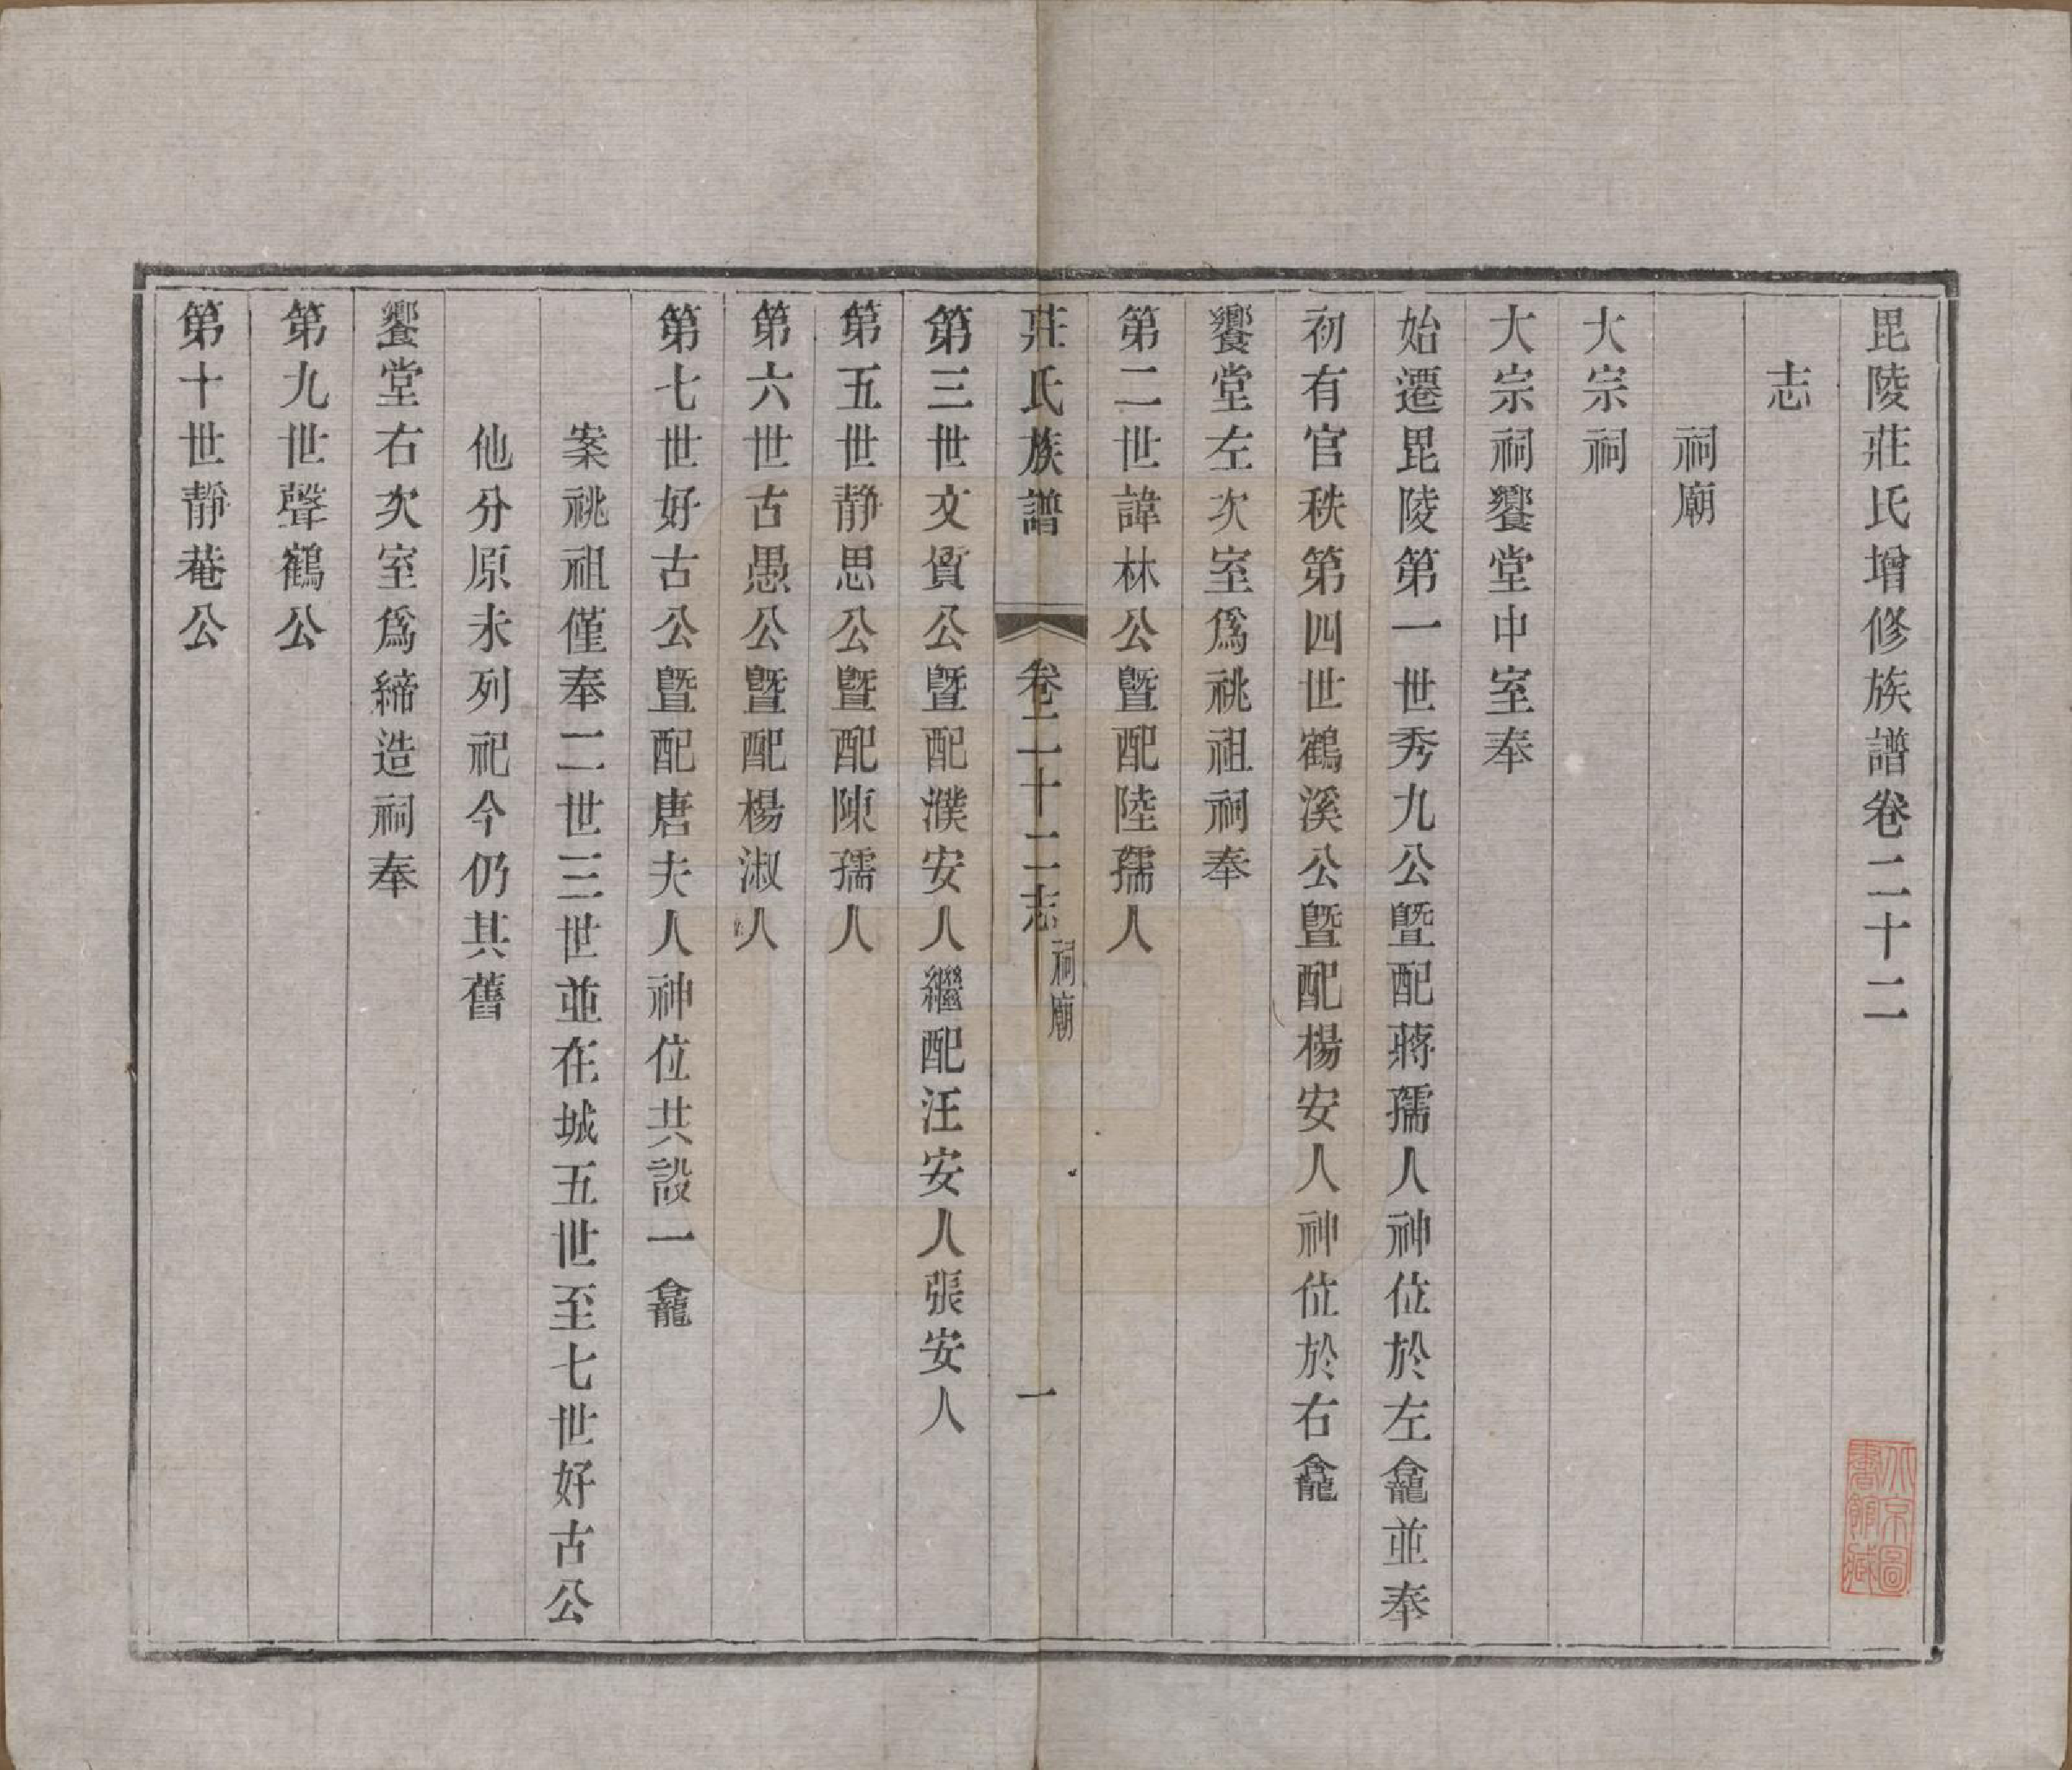 毘陵莊氏增修族譜卷二十二
志
祠廟
大宗祠
大宗祠饗堂中室奉
始遷毘陵第一世秀九公暨配蔣孺人神位於左龕並奉
初有官秩第四世鶴溪公暨配楊安人神位於右龕
饗堂左次室爲祧祖祠奉
第二世諱林公暨配陸孺人
莊氏族譜
卷二十二志
祠廟
一
第三世文質公暨配濮安人繼配汪安人張安人
第五世靜思公暨配陳孺人
第六世古愚公暨配楊淑人
第七世好古公暨配唐夫人神位共設一龕
案祧祖僅奉二世三世並在城五世至七世好古公
他分原未列祀今仍其舊
饗堂右次室爲締造祠奉
第九世聲鶴公
第十世靜菴公
北京圖書館藏